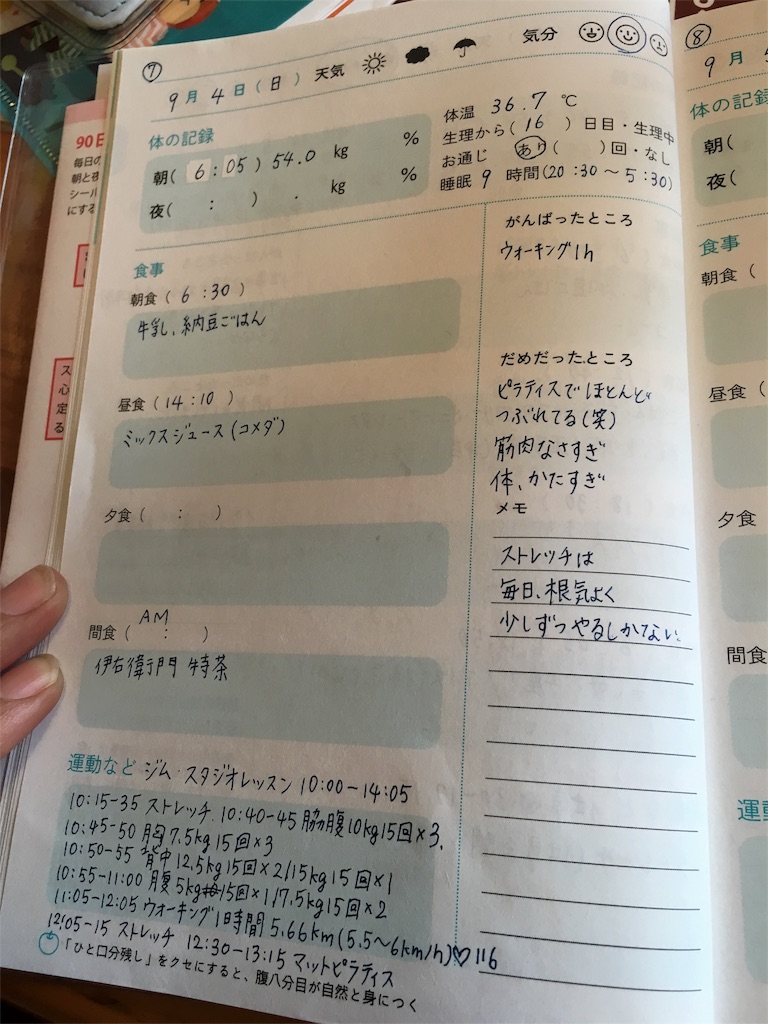 ⑦
9月4日(日) 天気 気分
体の記録
朝( 6:05 ) 54.0 kg %
夜( : ) . kg %
体温 36.7 ℃
生理から( 16 )日目・生理中
お通じ あり( )回・なし
睡眠 9 時間(20:30~5:30)
食事
朝食( 6:30 )
牛乳、納豆ごはん
昼食( 14:10 )
ミックスジュース(コメダ)
夕食( : )
AM
間食( : )
伊右衛門 特茶
がんばったところ
ウォーキング1h
だめだったところ
ピラティスでほとんど
つぶれてる(笑)
筋肉なさすぎ
体、かたすぎ
メモ
ストレッチは
毎日、根気よく
少しずつやるしかない。
運動など ジム・スタジオレッスン 10:00-14:05
10:15-35 ストレッチ. 10:40-45 脇腹10kg15回×3.
10:45-50 胸7.5kg15回×3
10:50-55 背中12.5kg15回×2/15kg15回×1
10:55-11:00 腹5kg15回×1/7.5kg15回×2
11:05-12:05 ウォーキング1時間5.66km(5.5~6km/h)♡116
12:05-15 ストレッチ 12:30-13:15 マットピラティス
「ひと口分残し」をクセにすると、腹八分目が自然と身につく
90日
毎日の
朝と夜
シール
にする
ス
心
定
る
⑧
9月
体の記録
朝(
夜(
食事
朝食(
昼食(
夕食
間食
運動